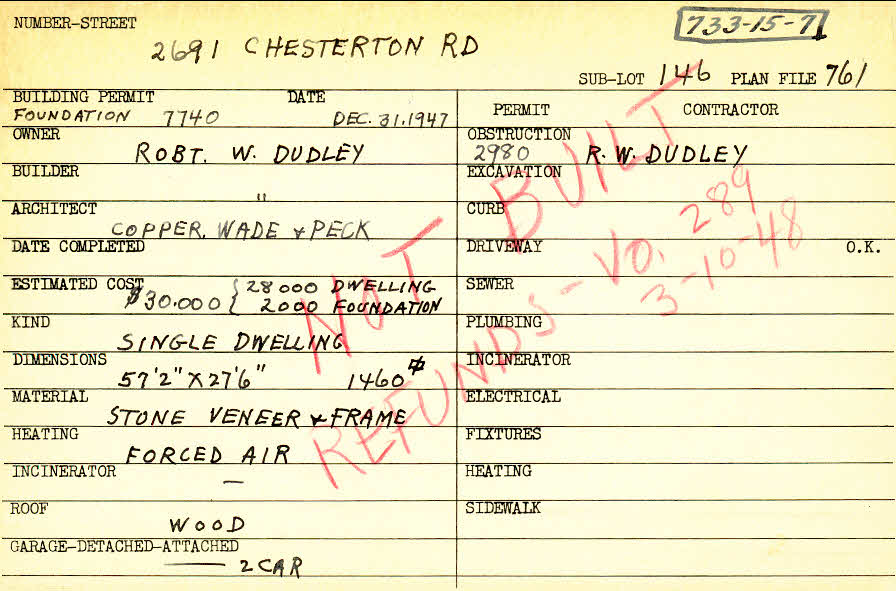 NUMBER-STREET
2691 CHESTERTON RD
733-15-71
SUB-LOT 146 PLAN FILE 761
BUILDING PERMIT DATE
FOUNDATION 7740 DEC. 31.1947
PERMIT CONTRACTOR
OWNER
ROBT. W. DUDLEY
OBSTRUCTION
2980 R. W. DUDLEY
BUILDER
"
EXCAVATION
ARCHITECT
COPPER, WADE & PECK
CURB
DATE COMPLETED
DRIVEWAY O.K.
ESTIMATED COST
$30.000 { 28000 DWELLING
2000 FOUNDATION
SEWER
KIND
SINGLE DWELLING
PLUMBING
DIMENSIONS
57'2" X 27'6" 1460
INCINERATOR
MATERIAL
STONE VENEER & FRAME
ELECTRICAL
HEATING
FORCED AIR
FIXTURES
INCINERATOR
—
HEATING
ROOF
WOOD
SIDEWALK
GARAGE-DETACHED-ATTACHED
—— 2 CAR
NOT BUILT
REFUNDS - VO. 289
3-10-48